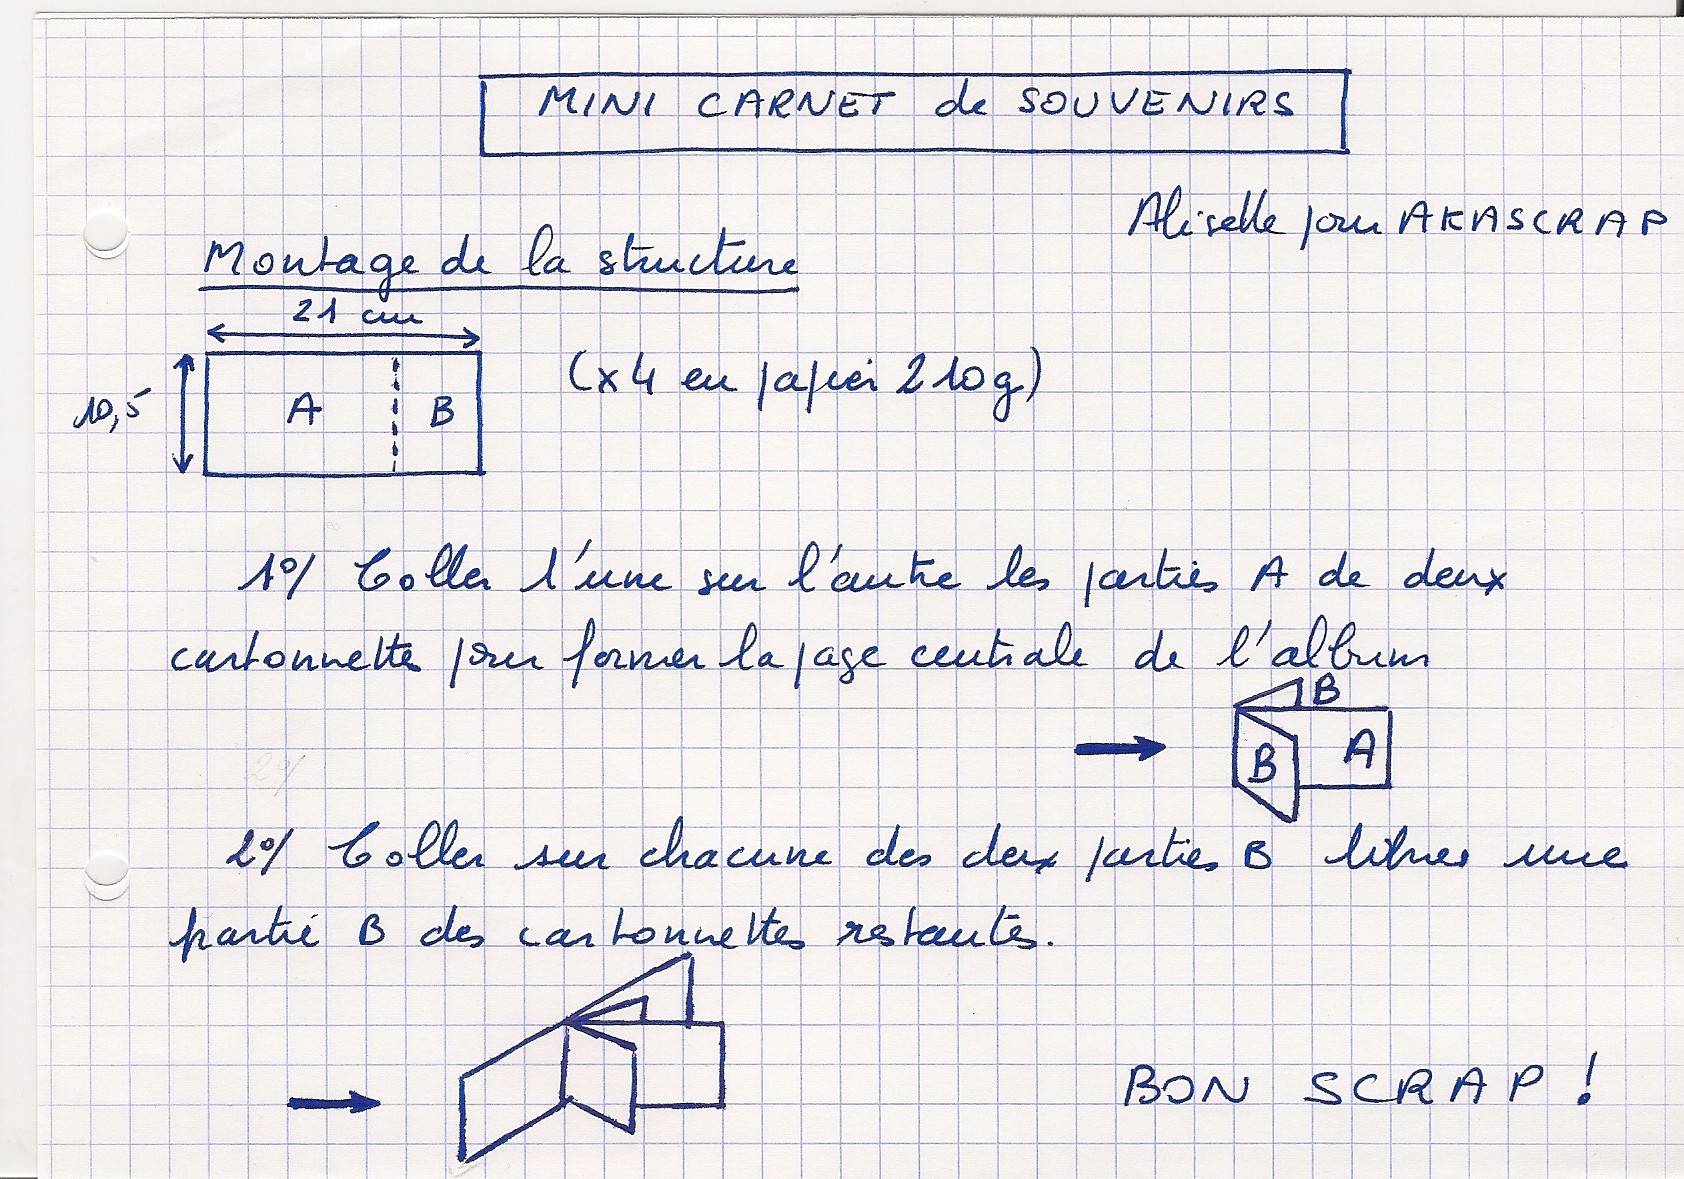 MINI CARNET de SOUVENIRS
Aliselle pour AKASCRAP
Montage de la structure
21 cm
10,5
A
B
(x4 en papier 210g)
1°/ Coller l'une sur l'autre les parties A de deux
cartonnettes pour former la page centrale de l'album
B
B
A
2°/ Coller sur chacune des deux parties B libres une
partie B des cartonnettes restantes.
BON SCRAP !